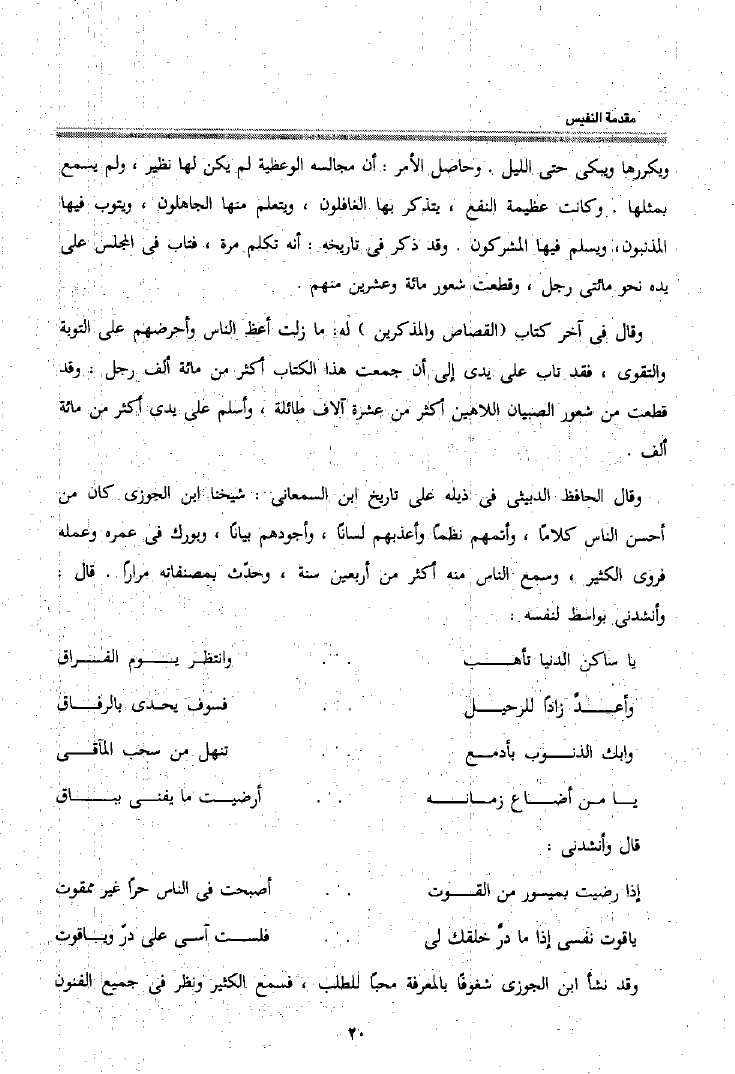 مقدمة النفيس
ويكررها ويبكى حتى الليل . وحاصل الأمر : أن مجالسه الوعظية لم يكن لها نظير ، ولم يسمع
بمثلها . وكانت عظيمة النفع ، يتذكر بها الغافلون ، ويتعلم منها الجاهلون ، ويتوب فيها
المذنبون، ويسلم فيها المشركون . وقد ذكر فى تاريخه : أنه تكلم مرة ، فتاب فى المجلس على
يده نحو مائتى رجل ، وقطعت شعور مائة وعشرين منهم .
وقال فى آخر كتاب (القصاص والمذكرين ) له: ما زلت أعظ الناس وأحرضهم على التوبة
والتقوى ، فقد تاب على يدى إلى أن جمعت هذا الكتاب أكثر من مائة ألف رجل . وقد
قطعت من شعور الصبيان اللاهين أكثر من عشرة آلاف طائلة ، وأسلم على يدى أكثر من مائة
ألف .
وقال الحافظ الدبيثى فى ذيله على تاريخ ابن السمعانى : شيخنا ابن الجوزى كان من
أحسن الناس كلامًا ، وأتمهم نظمًا وأعذبهم لسانًا ، وأجودهم بيانًا ، وبورك فى عمره وعمله
فروى الكثير ، وسمع الناس منه أكثر من أربعين سنة ، وحدّث بمصنفاته مرارًا . قال :
وأنشدنى بواسط لنفسه :
يا ساكن الدنيا تأهــب ∴ وانتظر يــوم الفــراق
وأعــدَّ زادًا للرحيــل ∴ فسوف يحدى بالرفــاق
وابك الذنــوب بأدمع ∴ تنهل من سحب المآقــى
يــا مــن أضــاع زمانــه ∴ أرضيــت ما يفنــى ببــاق
قال وأنشدنى :
إذا رضيت بميسور من القــوت ∴ أصبحت فى الناس حرًا غير ممقوت
ياقوت نفسى إذا ما درَّ خلقك لى ∴ فلســت آسى على درّ ويــاقوت
وقد نشأ ابن الجوزى شغوفًا بالمعرفة محبًا للطلب ، فسمع الكثير ونظر فى جميع الفنون
٢٠